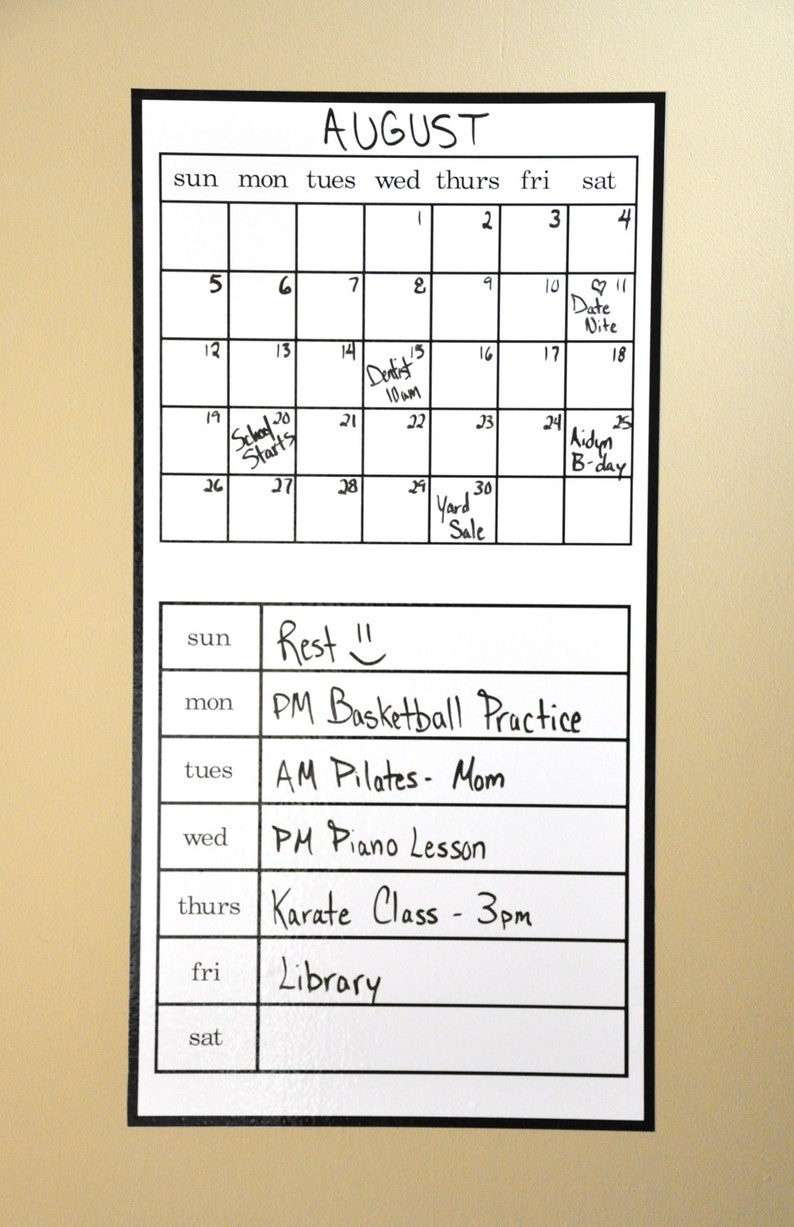 AUGUST
sun mon tues wed thurs fri sat
1 2 3 4
5 6 7 8 9 10 ♡ 11
Date
Nite
12 13 14 15 16 17 18
Dentist
10am
19 20 21 22 23 24 25
School
Starts
Aidyn
B-day
26 27 28 29 30
Yard
Sale
sun Rest
mon PM Basketball Practice
tues AM Pilates - Mom
wed PM Piano Lesson
thurs Karate Class - 3pm
fri Library
sat